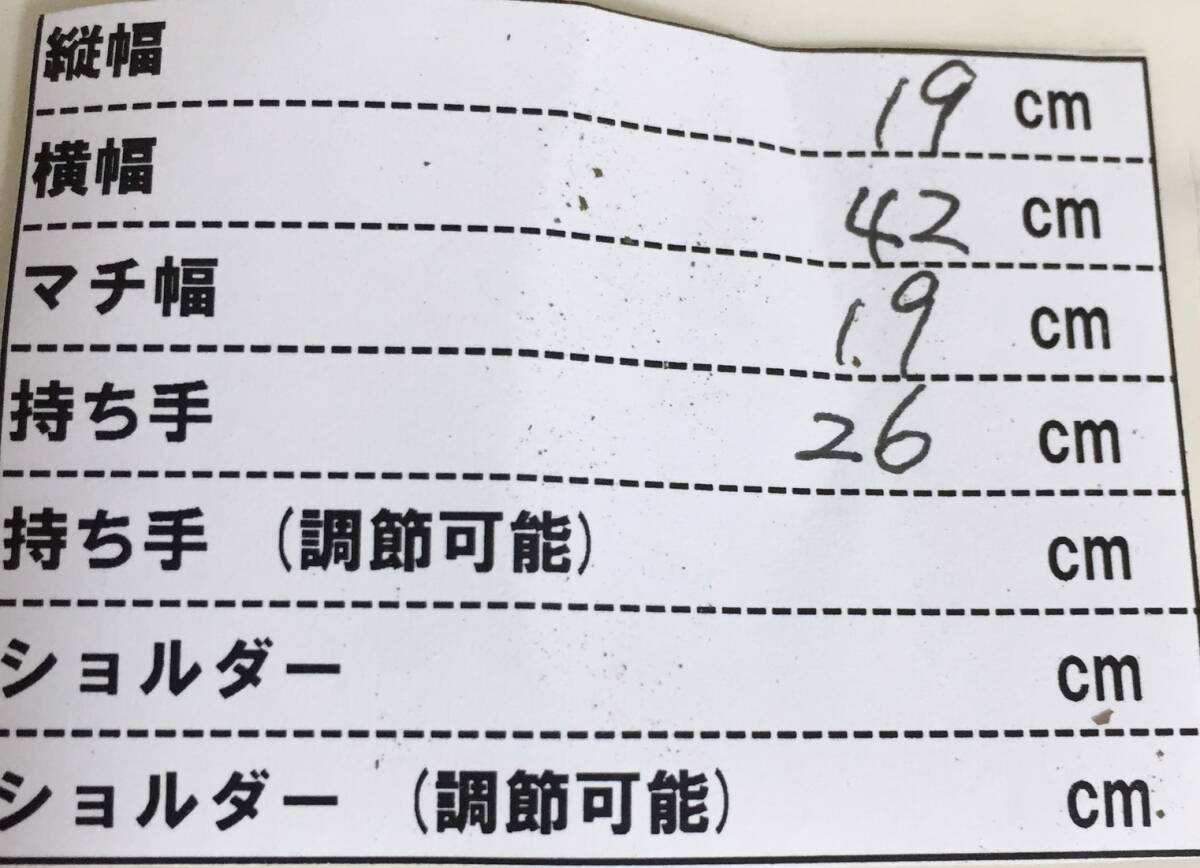 縦幅 19 cm
横幅 42 cm
マチ幅 19 cm
持ち手 26 cm
持ち手 (調節可能) cm
ショルダー cm
ショルダー (調節可能) cm